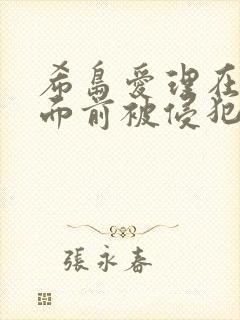 希島愛理在
而前被侵犯
張永春